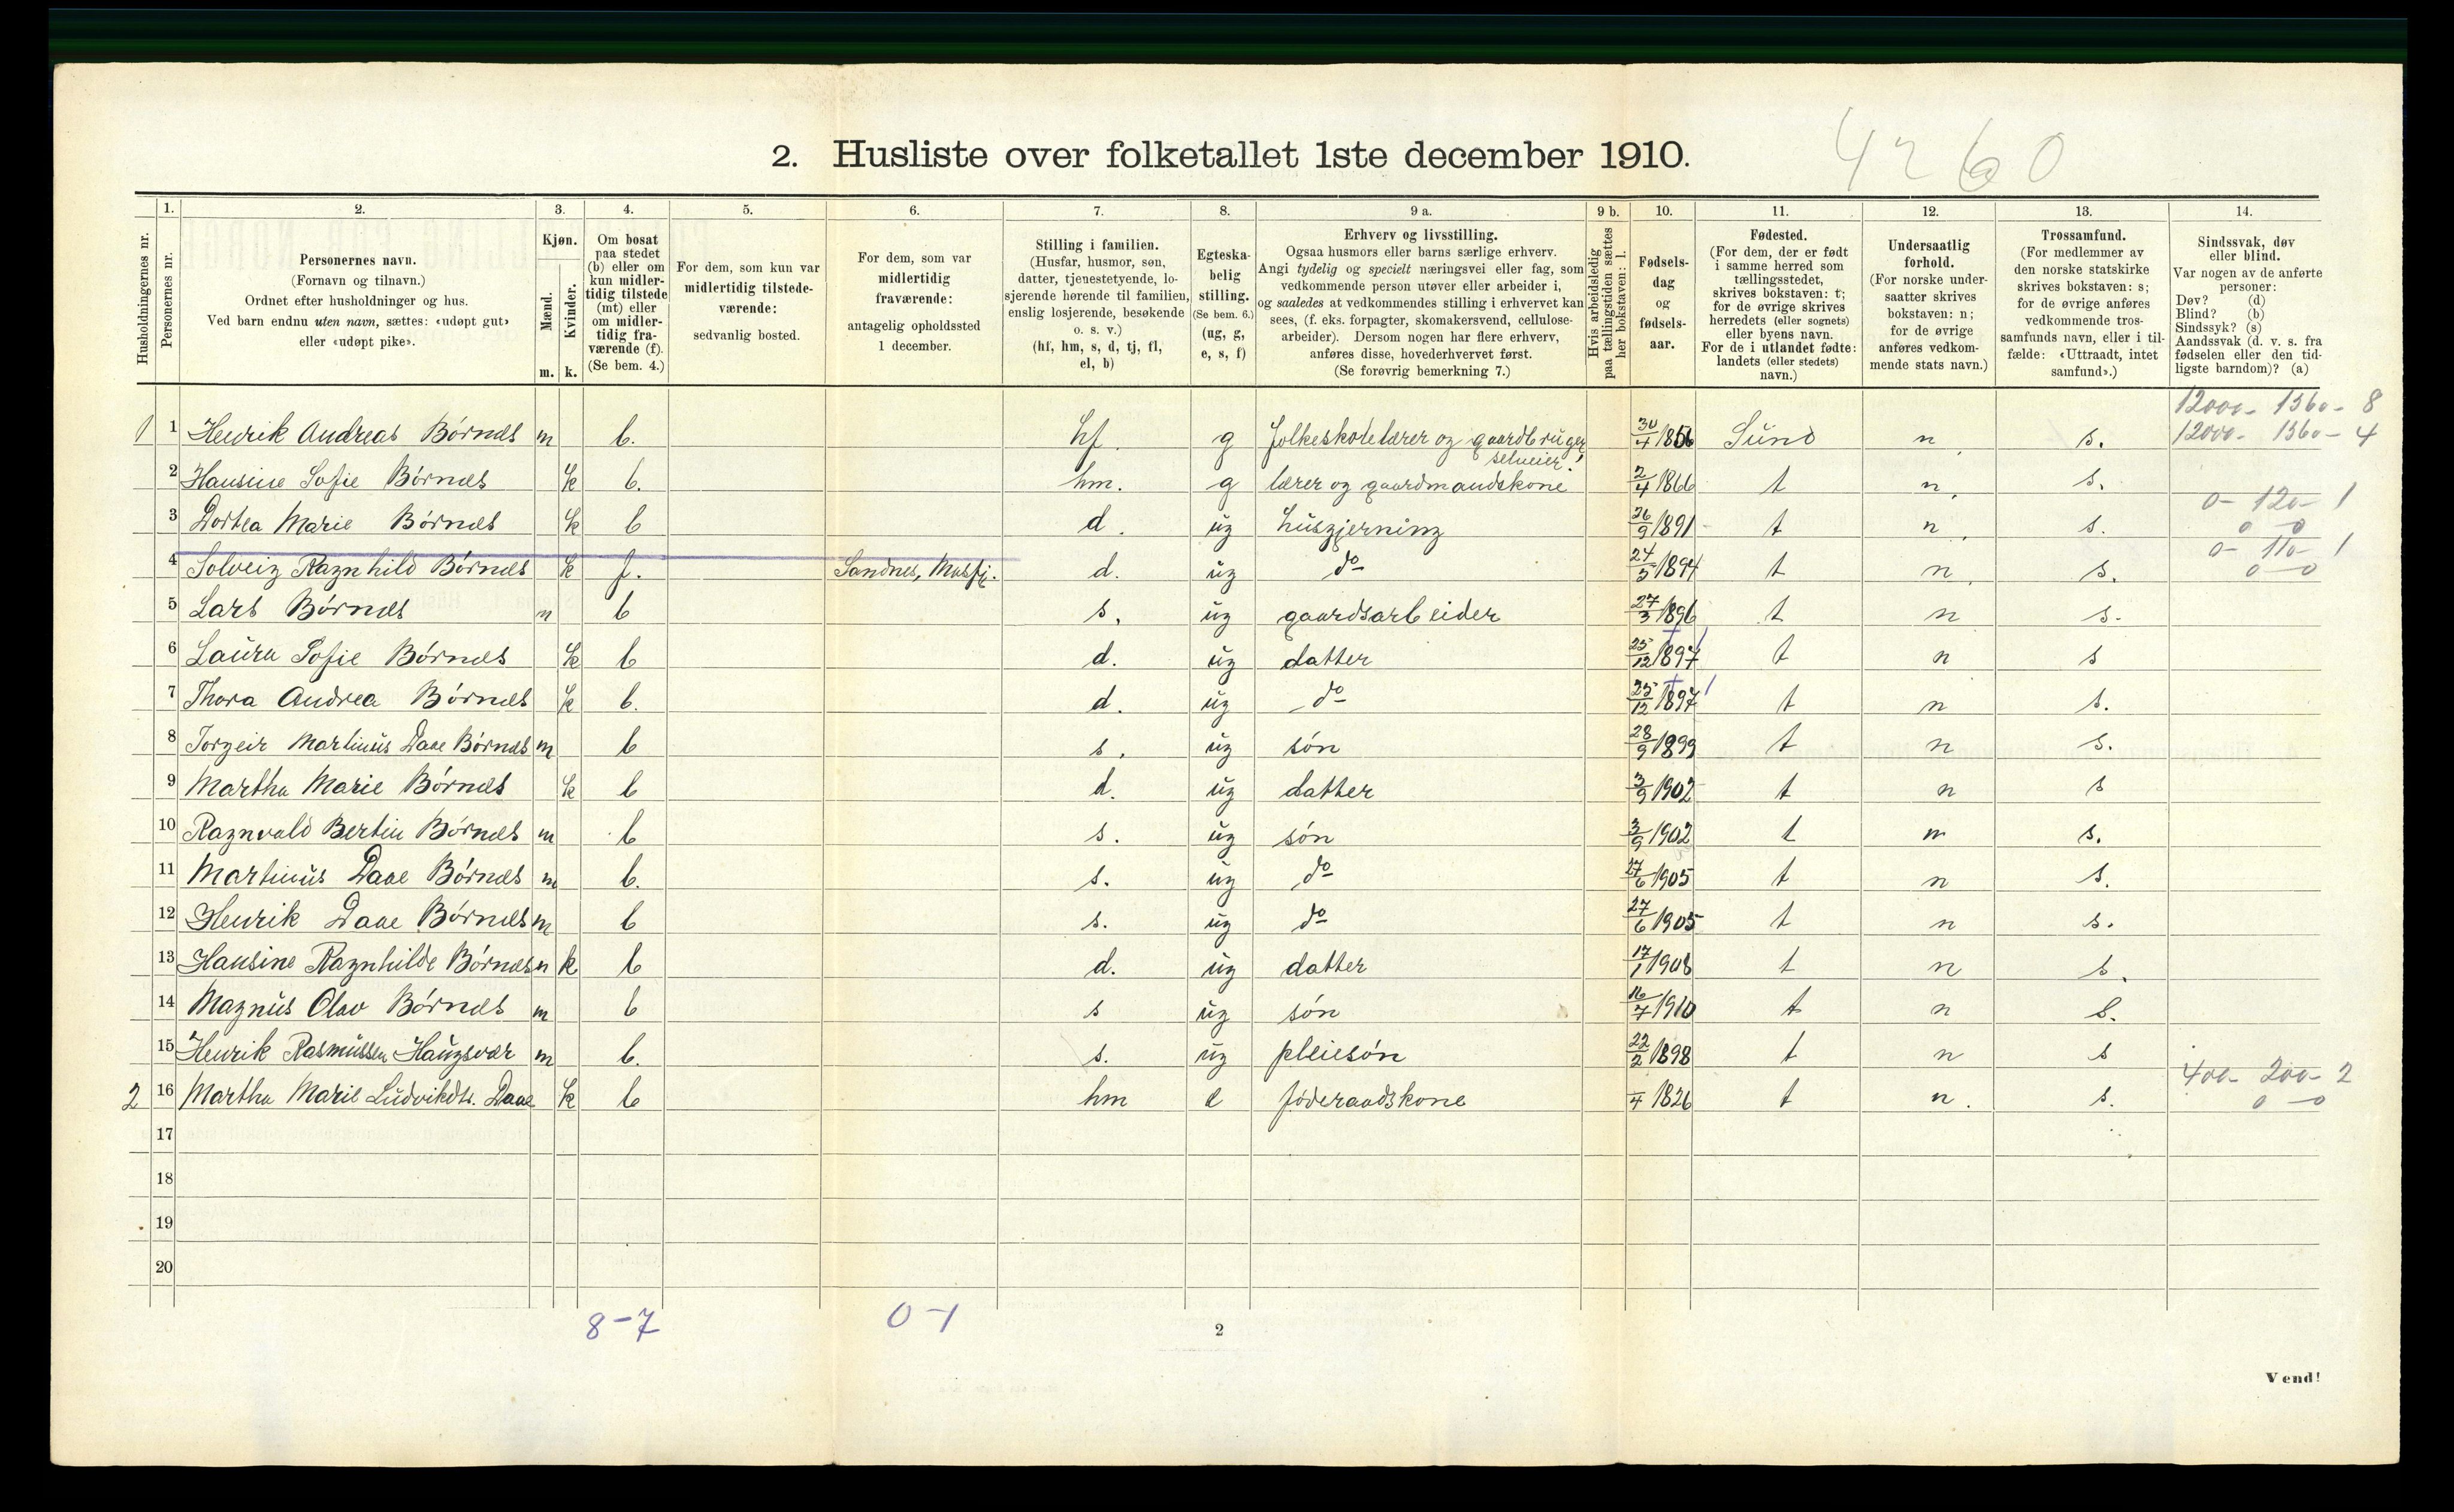 4260
2. Husliste over folketallet 1ste december 1910.
Husholdningernes nr.
1.
Personernes nr.
2.
Personernes navn.
(Fornavn og tilnavn.)
Ordnet efter husholdninger og hus.
Ved barn endnu uten navn, sættes: «udøpt gut»
eller «udøpt pike».
3.
Kjøn.
Mænd.
Kvinder.
m. k.
4.
Om bosat
paa stedet
(b) eller om
kun midler-
tidig tilstede
(mt) eller
om midler-
tidig fra-
værende (f).
(Se bem. 4.)
5.
For dem, som kun var
midlertidig tilstede-
værende:
sedvanlig bosted.
6.
For dem, som var
midlertidig
fraværende:
antagelig opholdssted
1 december.
7.
Stilling i familien.
(Husfar, husmor, søn,
datter, tjenestetyende, lo-
sjerende hørende til familien,
enslig losjerende, besøkende
o. s. v.)
(hf, hm, s, d, tj, fl,
el, b)
8.
Egteska-
belig
stilling.
(Se bem. 6.)
(ug, g,
e, s, f)
9 a.
Erhverv og livsstilling.
Ogsaa husmors eller barns særlige erhverv.
Angi tydelig og specielt næringsvei eller fag, som
vedkommende person utøver eller arbeider i,
og saaledes at vedkommendes stilling i erhvervet kan
sees, (f. eks. forpagter, skomakersvend, cellulose-
arbeider). Dersom nogen har flere erhverv,
anføres disse, hovederhvervet først.
(Se forøvrig bemerkning 7.)
9 b.
Hvis arbeidsledig
paa tællingstiden sættes
her bokstaven: l.
10.
Fødsels-
dag
og
fødsels-
aar.
11.
Fødested.
(For dem, der er født
i samme herred som
tællingsstedet,
skrives bokstaven: t;
for de øvrige skrives
herredets (eller sognets)
eller byens navn.
For de i utlandet fødte:
landets (eller stedets)
navn.)
12.
Undersaatlig
forhold.
(For norske under-
saatter skrives
bokstaven: n;
for de øvrige
anføres vedkom-
mende stats navn.)
13.
Trossamfund.
(For medlemmer av
den norske statskirke
skrives bokstaven: s;
for de øvrige anføres
vedkommende tros-
samfunds navn, eller i til-
fælde: «Uttraadt, intet
samfund».)
14.
Sindssvak, døv
eller blind.
Var nogen av de anførte
personer:
Døv? (d)
Blind? (b)
Sindssyk? (s)
Aandssvak (d. v. s. fra
fødselen eller den tid-
ligste barndom)? (a)
12000 - 1360 - 8
1 1 Henrik Andreas Børnæs m b. hf. g folkeskolelærer og gaardbruger selveier! 30/4 1856 Sund n s. 12000 - 1360 - 4
2 Hansine Sofie Børnæs k b. hm. g lærer og gaardmandskone 2/4 1866 t n. s.
3 Dortea Marie Børnæs k b d. ug husgjerning 26/9 1891 t n s. 0 - 120 - 1
0 - 0
4 Solveig Ragnhild Børnæs k f. Sandnes, Masfj. d. ug do 24/5 1894 t n. s. 0 - 110 - 1
0 - 0
5 Lars Børnæs m b s. ug gaardsarbeider 27/3 1896 t n s.
6 Laura Sofie Børnæs k b d. ug datter 25/12 1897 t n s
7 Thora Andrea Børnæs k b. d. ug do 25/12 1897 t n s.
8 Torgeir Martinus Daae Børnæs m b s. ug søn 28/9 1899 t n s.
9 Martha Marie Børnæs k b d. ug datter 3/9 1902 t n s
10 Ragnvald Bertin Børnæs m b s. ug søn 3/9 1902 t n s.
11 Martinus Daae Børnæs m b. s. ug do 27/6 1905 t n s.
12 Henrik Daae Børnæs m b s. ug do 27/6 1905 t n s.
13 Hansine Ragnhilde Børnæs k b d. ug datter 17/1 1908 t n s.
14 Magnus Olav Børnæs m b s ug søn 16/7 1910 t n s.
15 Henrik Rasmussen Haugsvær m b. s. ug pleiesøn 22/2 1898 t n s
2 16 Martha Marie Ludvikdtr. Daae k b hm e føderaadskone /4 1826 t n. s. 400 - 200 - 2
0 - 0
17
18
19
20
8 - 7
0 - 1
2
Vend!